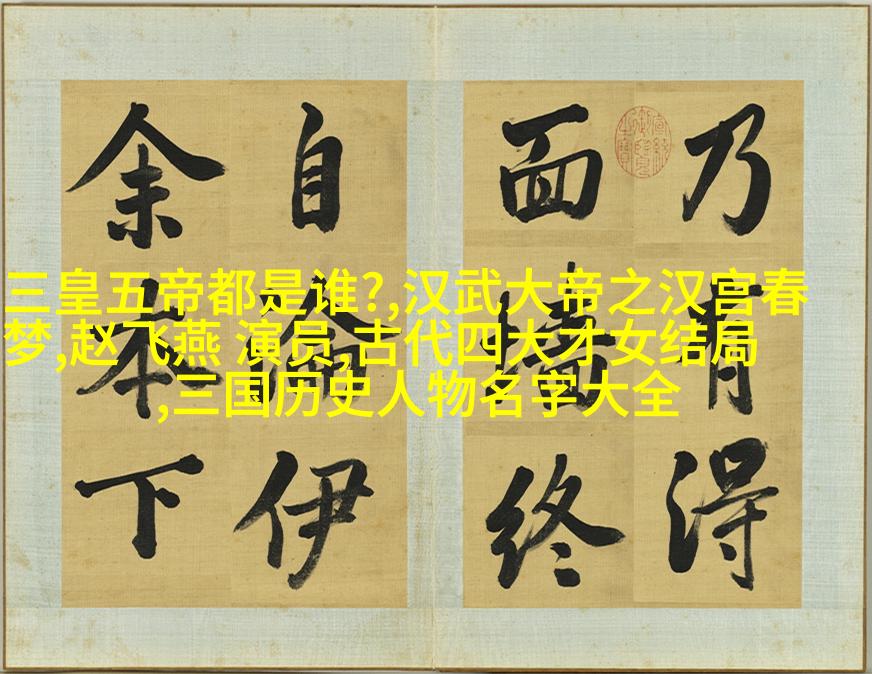 三皇五帝都是谁?,汉武大帝之汉宫春
梦,赵飞燕 演员,古代四大才女结局
,三国历史人物名字大全
乃有得
面墙终
自伊
余本下
宣統御覽之寶